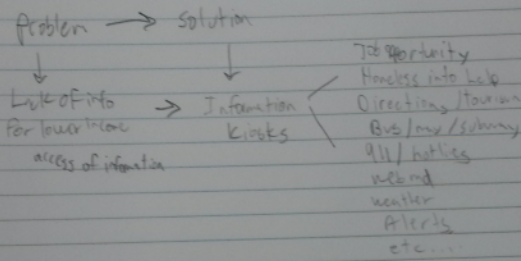 Problem → Solution
Lack of info
for lower income
access of information
→ Information
Kiosks
Job opportunity
Homeless info help
Directions/tourism
Bus / / subway
911/hotlines
webmd
weather
Alerts
etc....